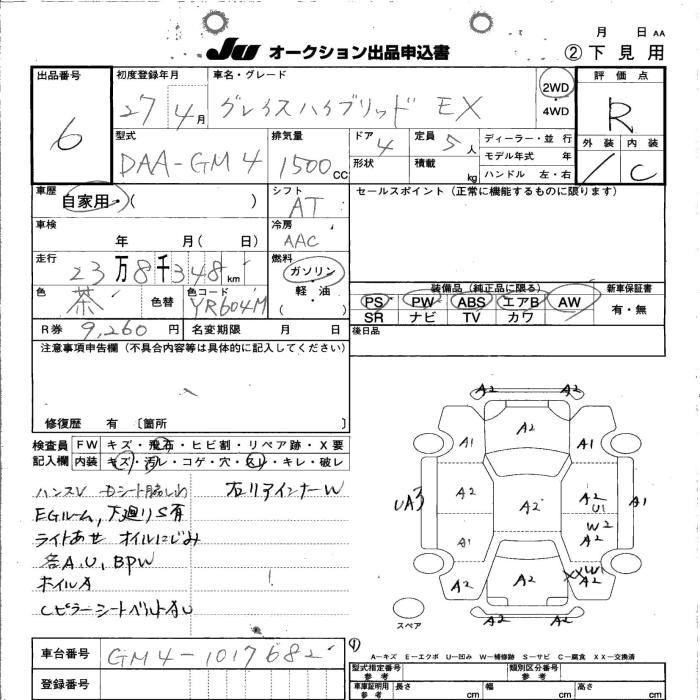 月 日 AA
JU オークション出品申込書 ②下見用
出品番号 6
初度登録年月 27 4月
車名・グレード グレイスハイブリッド EX
2WD・4WD
評価点 R
外装 内装
/ C
型式 DAA-GM4
排気量 1500cc
ドア 4
形状
定員 5人
積載 kg
ディーラー・並行
モデル年式 年
ハンドル 左・右
車歴 自家用・( )
シフト AT
セールスポイント(正常に機能するものに限ります)
車検 年 月( 日)
冷房 AAC
走行 23万8千348km
燃料 ガソリン・軽油・( )
色 茶 色替
色コード YR604M
装備品(純正品に限る)
PS PW ABS エアB AW
SR ナビ TV カワ
新車保証書 有・無
R券 9,260円 名変期限 月 日
後日品
注意事項申告欄(不具合内容等は具体的に記入してください)
修復歴 有 〔箇所 〕
検査員記入欄
FW キズ・飛石・ヒビ割・リペア跡・X要
内装 キズ・汚レ・コゲ・穴・スレ・キレ・破レ
ハンスV Dシート脇しわ 右リアインナーW
EGルーム,下廻りS有
ライトあせ オイルにじみ
各A,U,BPW
ホイルA
CピラーシートベルトガU
A2 A2
A1 A2 A1
UA3 A2 A2 A2 U1 A1
A1 W2 A2
A2 A2 XXW1 A2
A2 A2
スペア
車台番号 GM4-1017682
登録番号
A-キズ E-エクボ U-凹み W-補修跡 S-サビ C-腐食 XX-交換済
型式指定番号 参考
類別区分番号 参考
車庫証明用 参考 長さ cm 幅 cm 高さ cm